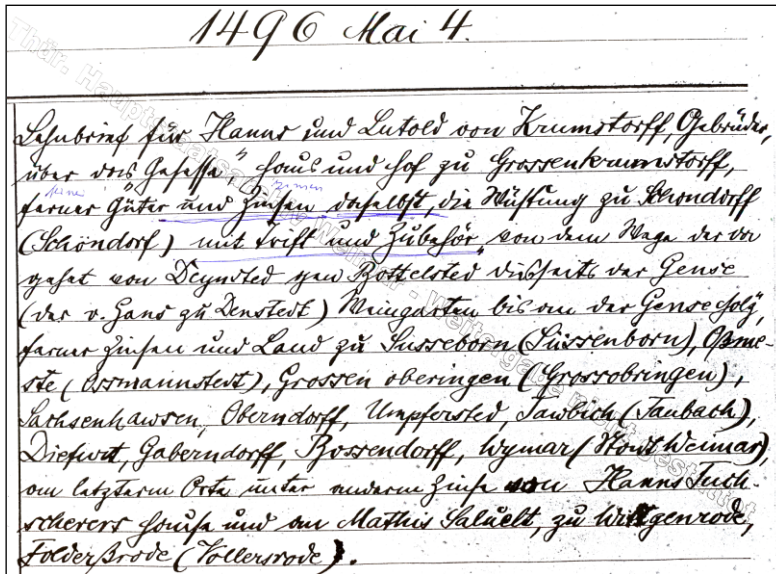 1496 Mai 4.
Lehnbrief für Hanns und Lutold von Krumstorff, Gebrüder,
über das Gesesse" haus und hof zu Grossenkrumstorff,
seine Zinsen
ferner Güter und Zinsen daselbst, die Wüstung zu Schondorff
(Schöndorf) mit Trift und Zubehör, von dem Wege der da
gehet von Deynsted gen Bottelsted disseits der Gense
(der v. Gans zu Denstedt) Weingarten bis an der Gense holz,
ferner Zinsen und Land zu Susseborn (Süssenborn), Osme-
ste (Ossmannstedt), Grossen oberingen (Grossobringen),
Sachsenhawsen, Oberndorff, Umpfersted, Tawbich (Taubach),
Diefurt, Gaberndorff, Bossendorff, Wymar (Stadt Weimar),
an letzterm Orte unter anderm Zinse von Hanns Tuch-
scherers hause und an Mathis Saluelt, zu
Folderßrode (Vollersrode).
Thür. Hauptstaatsarchiv Weimar - Weitergabe nicht gestattet